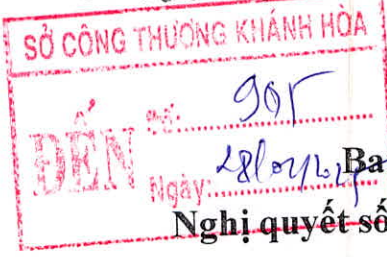 SỞ CÔNG THƯƠNG KHÁNH HÒA
ĐẾN
Số: 905
Ngày:
Ba
Nghị quyết số